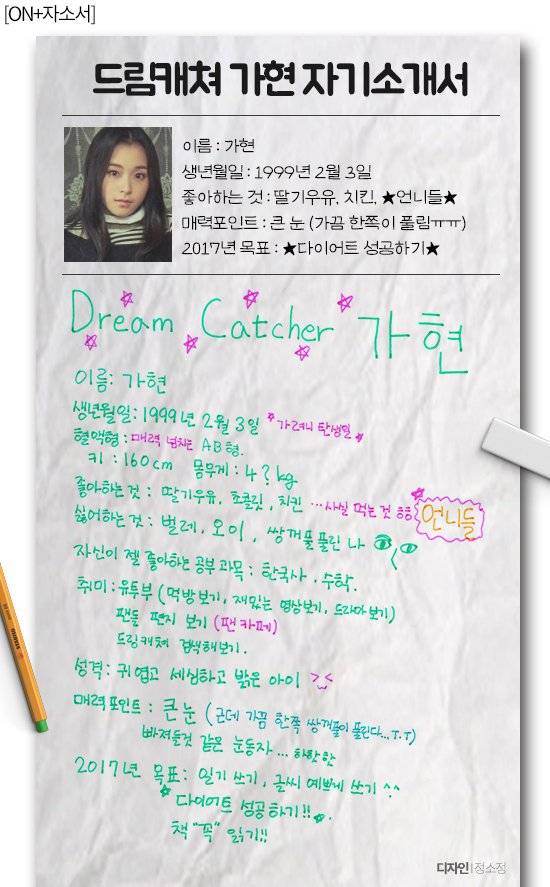 [ON+자소서]
드림캐쳐 가현 자기소개서
이름 : 가현
생년월일 : 1999년 2월 3일
좋아하는 것 : 딸기우유, 치킨, ★언니들★
매력포인트 : 큰 눈 (가끔 한쪽이 풀림ㅠㅠ)
2017년 목표 : ★다이어트 성공하기★
Dream Catcher 가현
이름: 가현
생년월일: 1999년 2월 3일 *가려니 탄생일*
혈액형: 매력 넘치는 AB형.
키 : 160cm 몸무게 : 4?kg
좋아하는것 : 딸기우유, 초콜릿, 치킨 ...사실 먹는것 ㅎㅎ 언니들
싫어하는것 : 벌레, 오이, 쌍꺼풀 풀린 나
자신이 젤 좋아하는 공부 과목 : 한국사, 수학.
취미 : 유투부 (먹방보기, 재밌는 영상보기, 드라마보기)
팬들 편지 보기 (팬카페)
드림캐쳐 검색해보기.
성격 : 귀엽고 세심하고 밝은 아이 >_<
매력포인트 : 큰 눈 (근데 가끔 한쪽 쌍꺼풀이 풀린다...T.T)
빠져들것 같은 눈동자... 하핫한
2017년 목표: 일기 쓰기, 글씨 예쁘게 쓰기 ^^
*다이어트 성공하기!!*
책 "꼭" 읽기!!
디자인|정소정